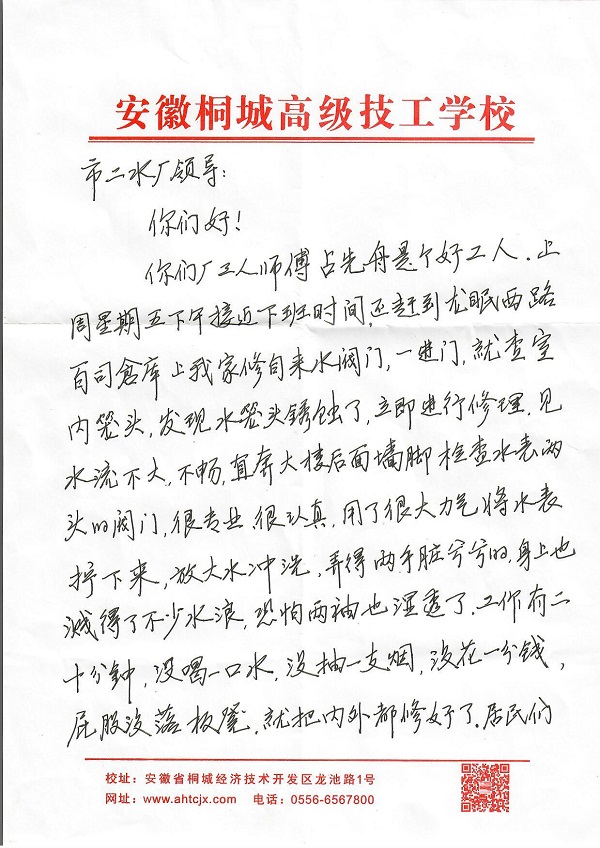 安徽桐城高级技工学校
市二水厂领导:
你们好!
你们厂工人师傅占先舟是个好工人.上
周星期五下午接近下班时间,还赶到龙眠西路
百司仓库上我家修自来水阀门,一进门,就查室
内笼头,发现水笼头锈蚀了,立即进行修理,见
水流不大,不畅,直奔大楼后面墙脚检查水表两
头的阀门,很专业、很认真,用了很大力气将水表
拧下来,放大水冲洗,弄得两手脏兮兮的,身上也
溅得了不少水浪,恐怕两袖也湿透了.工作有二
十分钟,没喝一口水,没抽一支烟,没花一分钱,
屁股没落板凳,就把内外都修好了.居民们
校址:安徽省桐城经济技术开发区龙池路1号
网址:www.ahtcjx.com 电话:0556-6567800